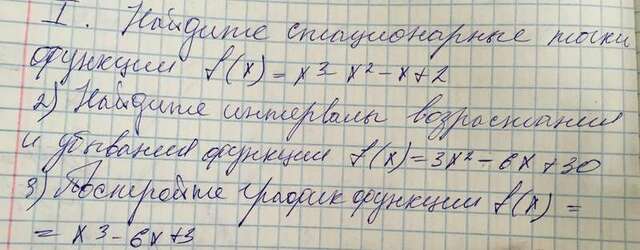 I. Найдите стационарные точки
функции f(x) = x3 - x2 - x + 2
2) Найдите интервалы возрастания
и убывания функции f(x) = 3x2 - 6x + 30
3) Постройте график функции f(x) =
= x3 - 6x + 3